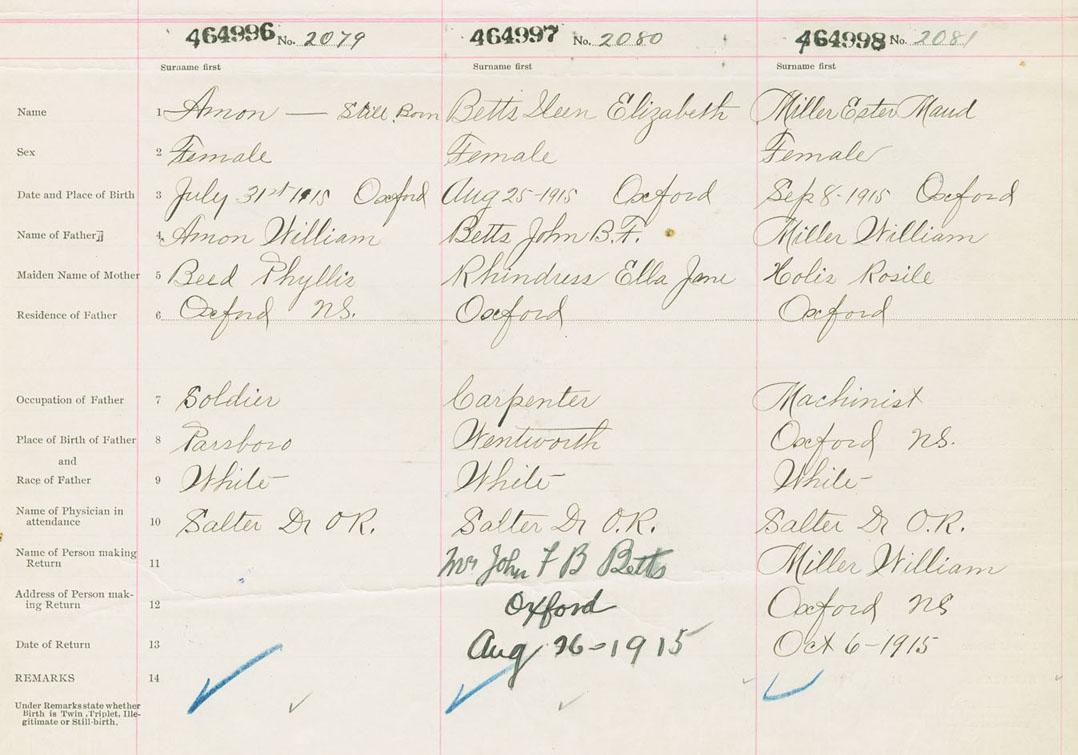 464996 No. 2079 464997 No. 2080 464998 No. 2081
Surname first Surname first Surname first
Name 1 Amon — Still Born Betts Ileen Elizabeth Miller Ester Maud
Sex 2 Female Female Female
Date and Place of Birth 3 July 31st 1915 Oxford Aug 25-1915 Oxford Sep 8-1915 Oxford
Name of Father 4 Amon William Betts John B.F. Miller William
Maiden Name of Mother 5 Beed Phyllis Rhindress Ella Jane Holis Rosile
Residence of Father 6 Oxford NS. Oxford Oxford
Occupation of Father 7 Soldier Carpenter Machinist
Place of Birth of Father 8 Parsboro Wentworth Oxford NS.
and
Race of Father 9 White White White
Name of Physician in
attendance 10 Salter Dr O.R. Salter Dr O.R. Salter Dr O.R.
Name of Person making
Return 11 Mrs John F B Betts Miller William
Address of Person mak-
ing Return 12 Oxford Oxford NS
Date of Return 13 Aug 26-1915 Oct 6-1915
REMARKS 14
Under Remarks state whether
Birth is Twin, Triplet, Ille-
gitimate or Still-birth.